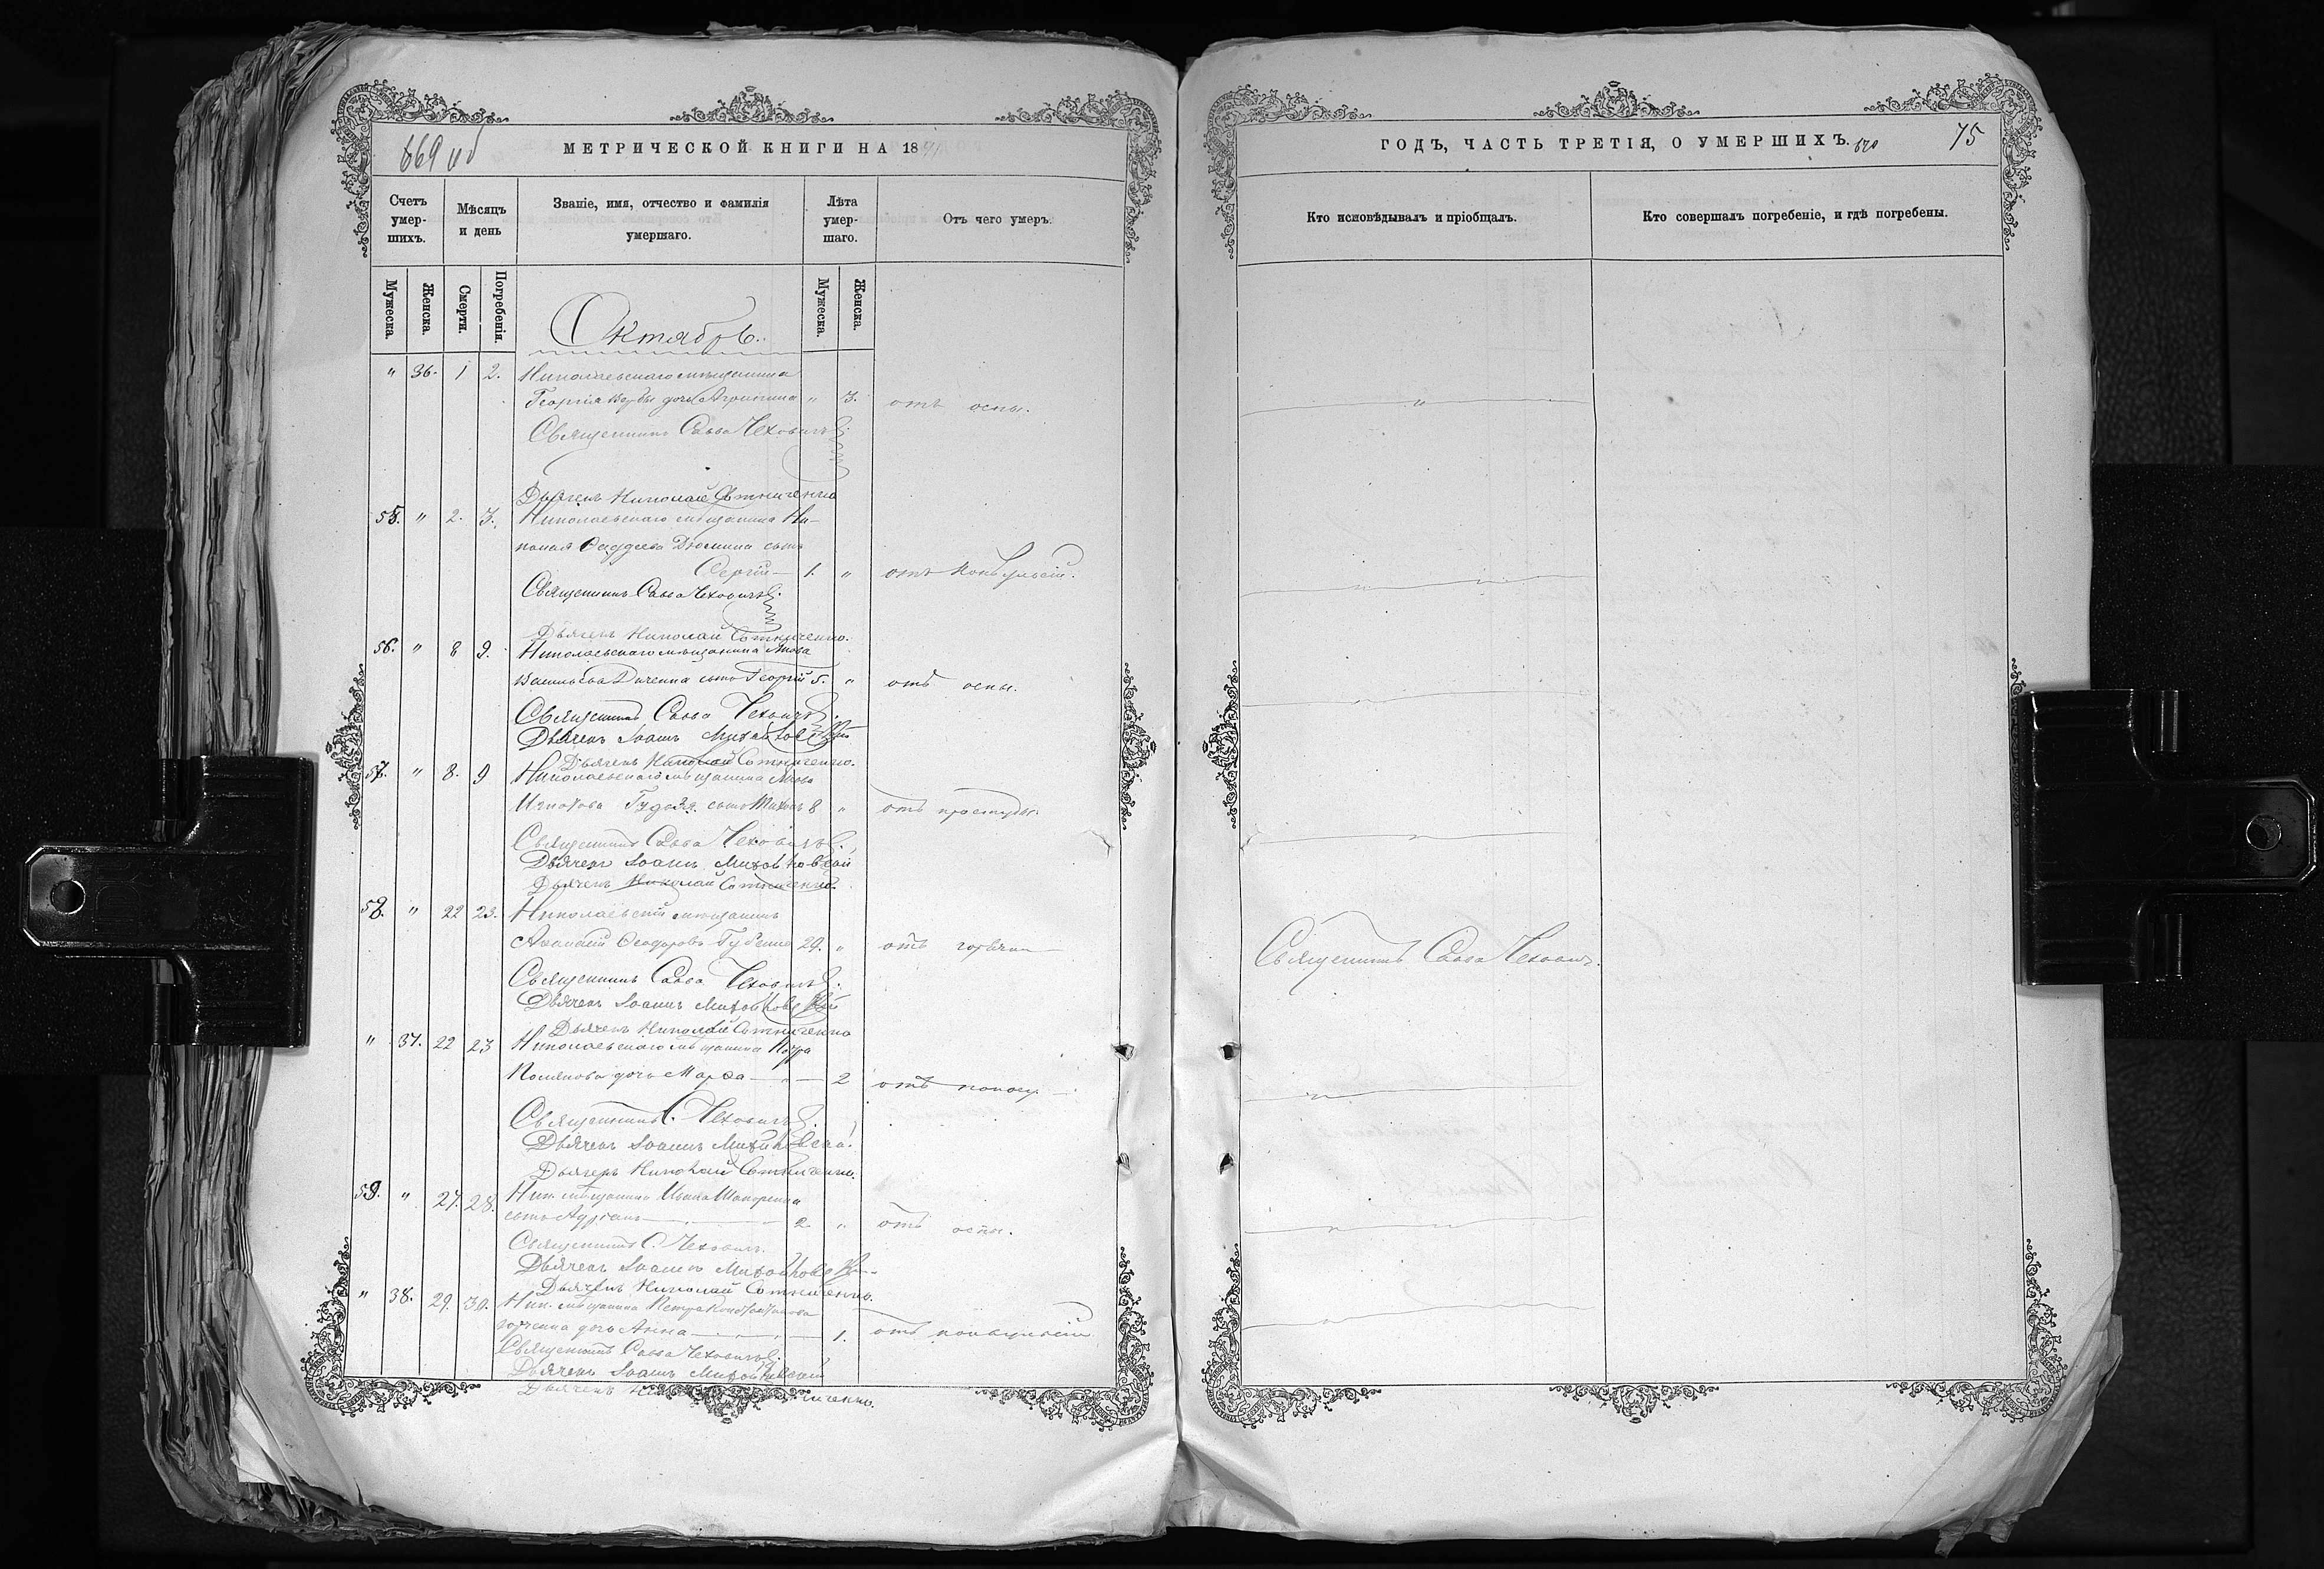 669 об
МЕТРИЧЕСКОЙ КНИГИ НА 1871
Счетъ умер-шихъ.
Мѣсяцъ и день
Званіе, имя, отчество и фамилія умершаго.
Лѣта умер-шаго.
Отъ чего умеръ.
Мужеска.
Женска.
Смерти.
Погребенія.
Мужеска.
Женска.
Октябрь.
" 36. 1 2. Николаевскаго мѣщанина
Георгія дочь Агрипина " 3. отъ оспы.
Священникъ Савва Чеховичъ
Дьячекъ Николай Сотниченко
55. " 2. 3. Николаевскаго мѣщанина Ни-
колая Фаддеева сынъ
Сергій 1. " отъ конвульсій.
Священникъ Савва Чеховичъ.
Дьячекъ Николай Сотниченко.
56. " 8 9. Николаевскаго мѣщанина Якова
Васильева сынъ Георгій 5. " отъ оспы.
Священникъ Савва Чеховичъ.
Дьячекъ Іоаннъ
Дьячекъ Николай Сотниченко.
57. " 8. 9 Николаевскаго мѣщанина
Игнатова Гудзя сынъ 8 " отъ простуды.
Священникъ Савва Чеховичъ.
Дьячекъ Іоаннъ
Дьячекъ Николай Сотниченко.
58. " 22 23. Николаевскій мѣщанинъ
Феодоровъ Губенко 29. " отъ горячки
Священникъ Савва Чеховичъ.
Дьячекъ Іоаннъ
Дьячекъ Николай Сотниченко
" 37. 22 23 Николаевскаго мѣщанина Петра
дочь Марфа 2 отъ поносу
Священникъ С. Чеховичъ.
Дьячекъ Іоаннъ
Дьячекъ Николай Сотниченко.
59. " 27. 28. Ник. мѣщанина Ивана
сынъ Адріанъ 2. " отъ оспы.
Священникъ С. Чеховичъ.
Дьячекъ Іоаннъ
Дьячекъ Николай Сотниченко.
" 38. 29. 30. Ник. мѣщанина Петра
дочь Анна 1. отъ конвульсій
Священникъ Савва Чеховичъ.
Дьячекъ Іоаннъ
Дьячекъ
ГОДЪ, ЧАСТЬ ТРЕТІЯ, О УМЕРШИХЪ. 670
75
Кто исповѣдывалъ и пріобщалъ.
Кто совершалъ погребеніе, и гдѣ погребены.
Священникъ Савва Чеховичъ.